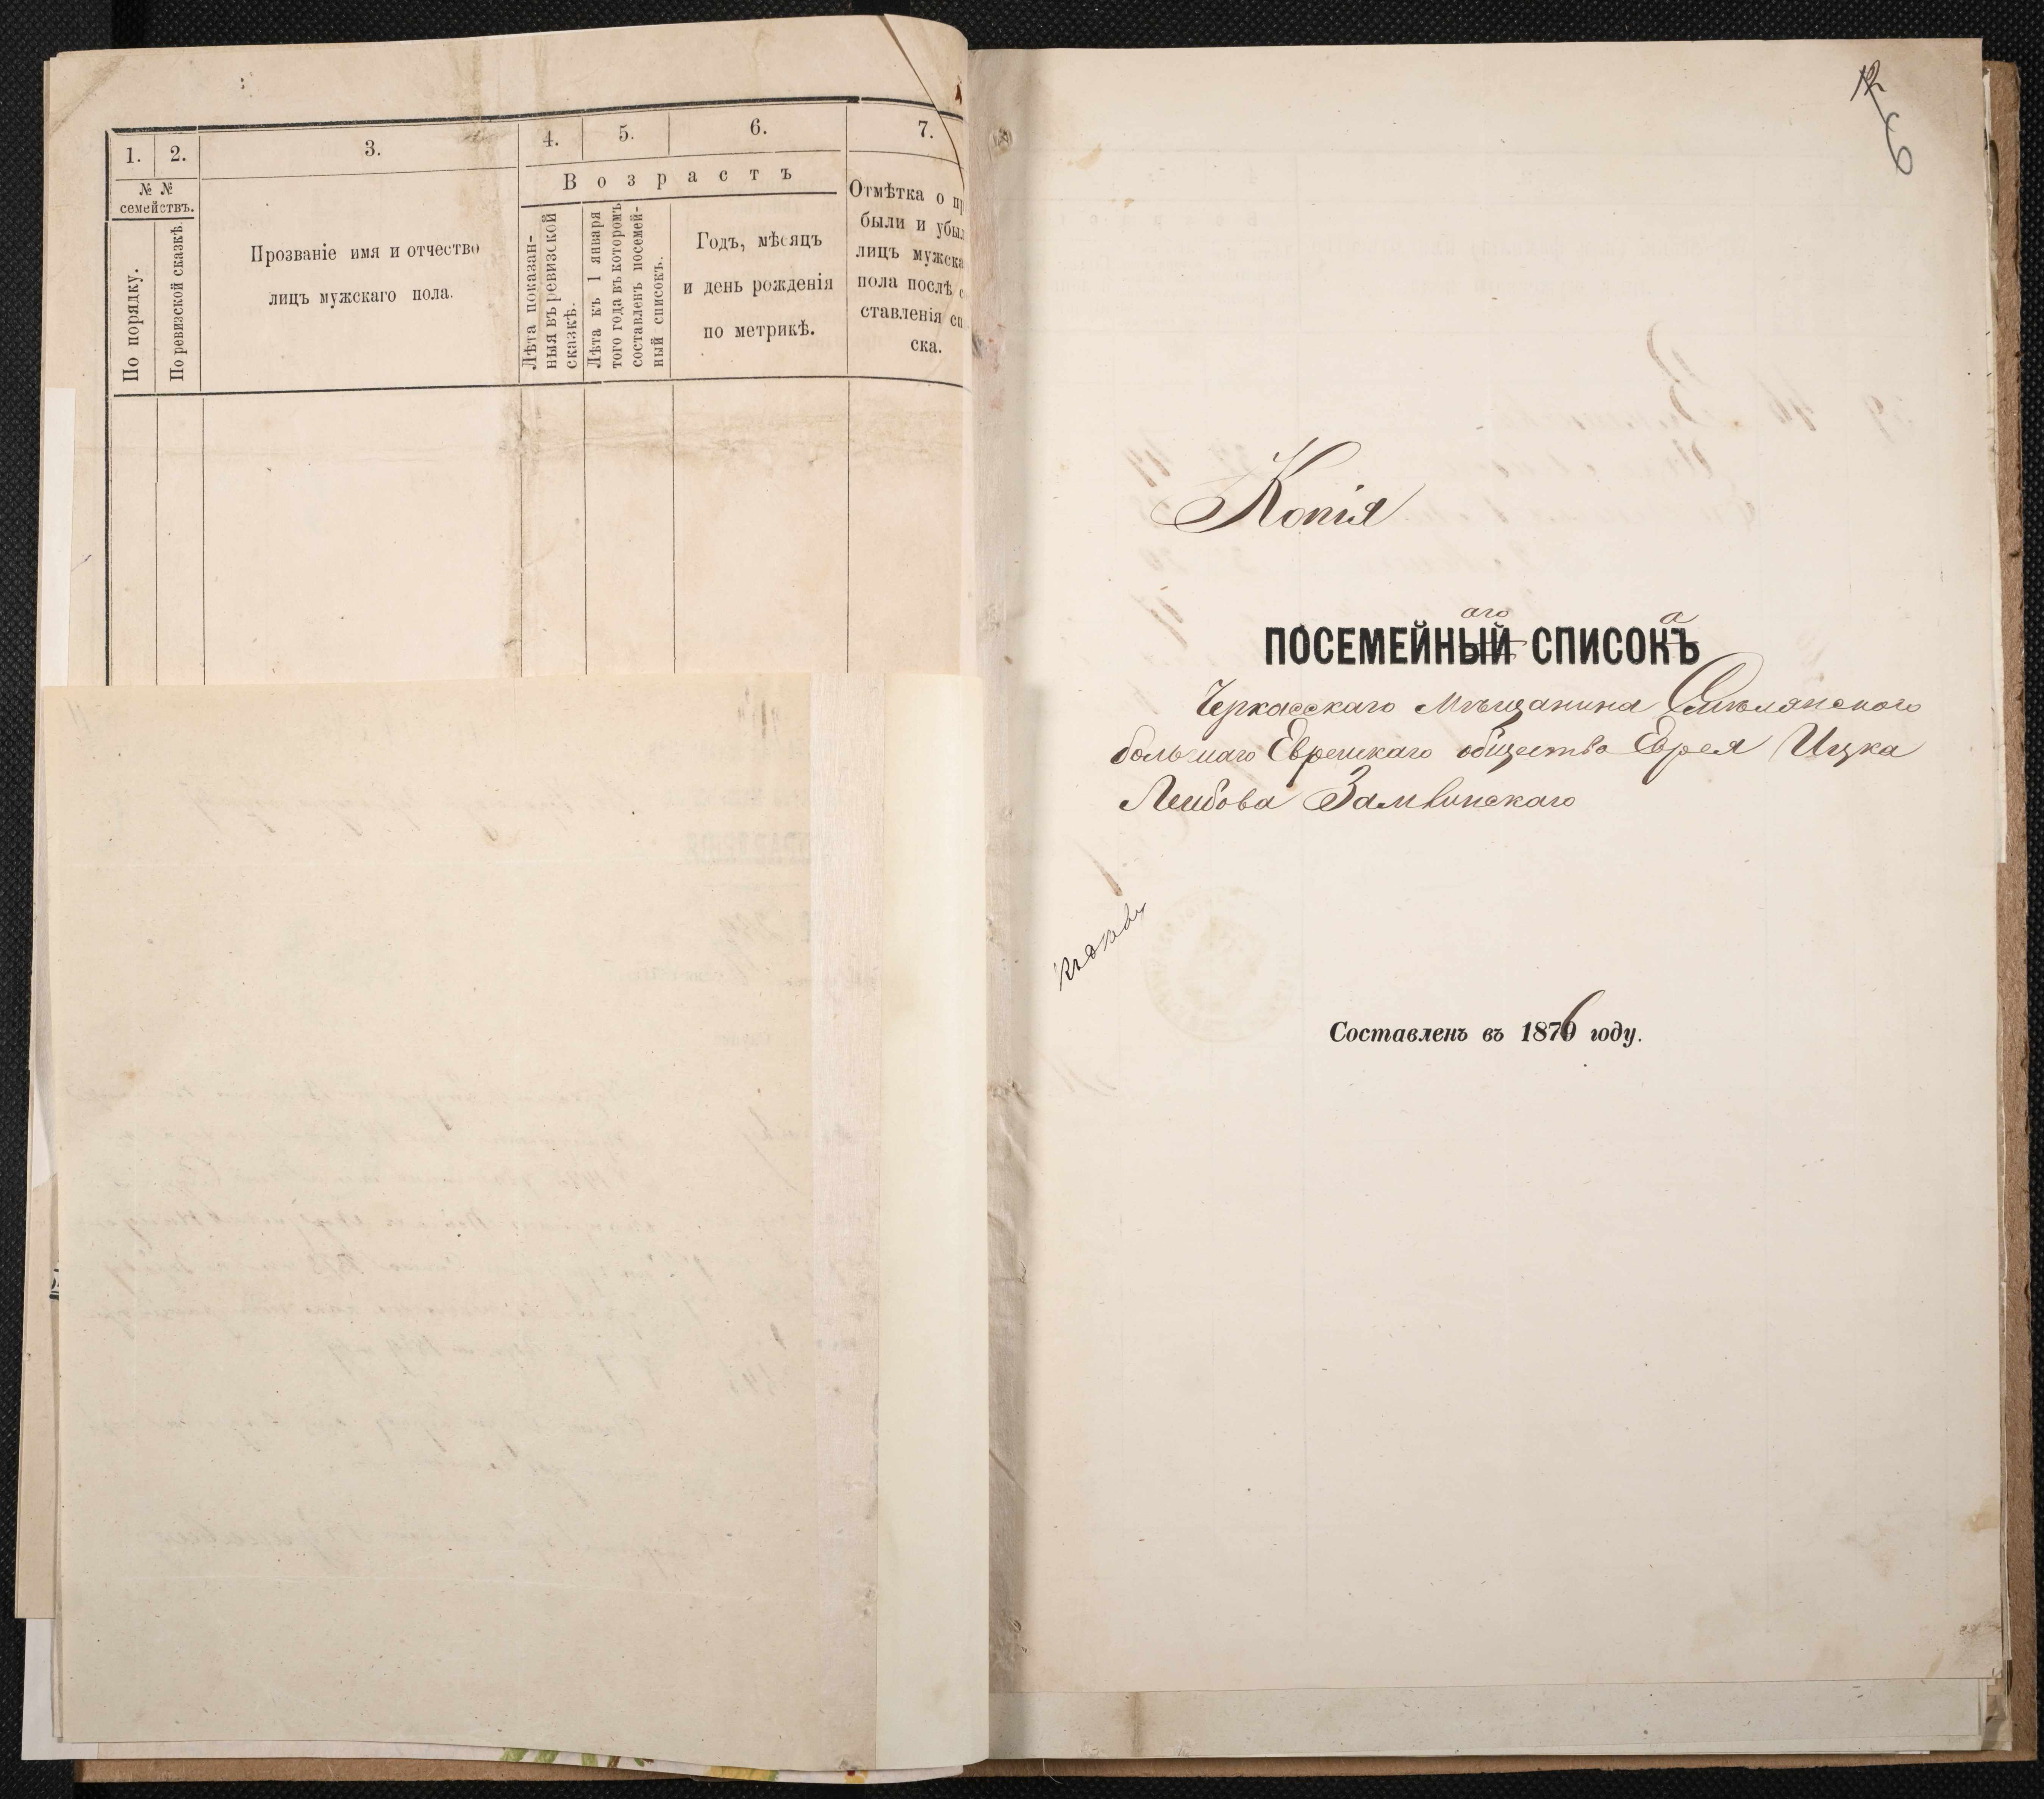 1. 2. 3. 4. 5. 6. 7.
№ №
семействъ.
По порядку.
По ревизской сказкѣ
Прозваніе имя и отчество
лицъ мужскаго пола.
Возрастъ
Лѣта показан-
ныя въ ревизской
сказкѣ.
Лѣта къ 1 января
того года въ которомъ
составленъ посемей-
ный списокъ.
Годъ, мѣсяцъ
и день рожденія
по метрикѣ.
Отмѣтка о пр
были и убы
лицъ мужска
пола послѣ с
ставленія сп
ска.
12
6
Копія
аго а
ПОСЕМЕЙНЫЙ СПИСОКЪ
Черкасскаго Мѣщанина Смѣлянского
большаго Еврейскаго общества Еврея Ицка
Лейбова Замвинскаго
Составленъ въ 1876 году.